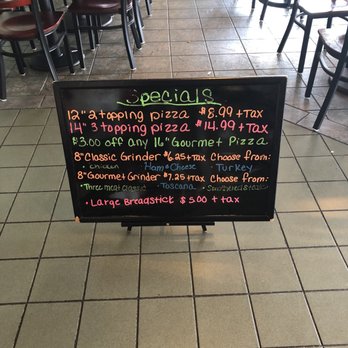 Specials
12" 2 topping pizza $8.99 + Tax
14" 3 topping pizza $14.99 + Tax
$3.00 off any 16" Gourmet Pizza
8" Classic Grinder $6.25 + tax Choose from:
• Chicken Ham & Cheese • Turkey
8" Gourmet Grinder $7.25 + tax Choose from:
• Three meat Classic • Toscana
• Large Breadstick $5.00 + tax